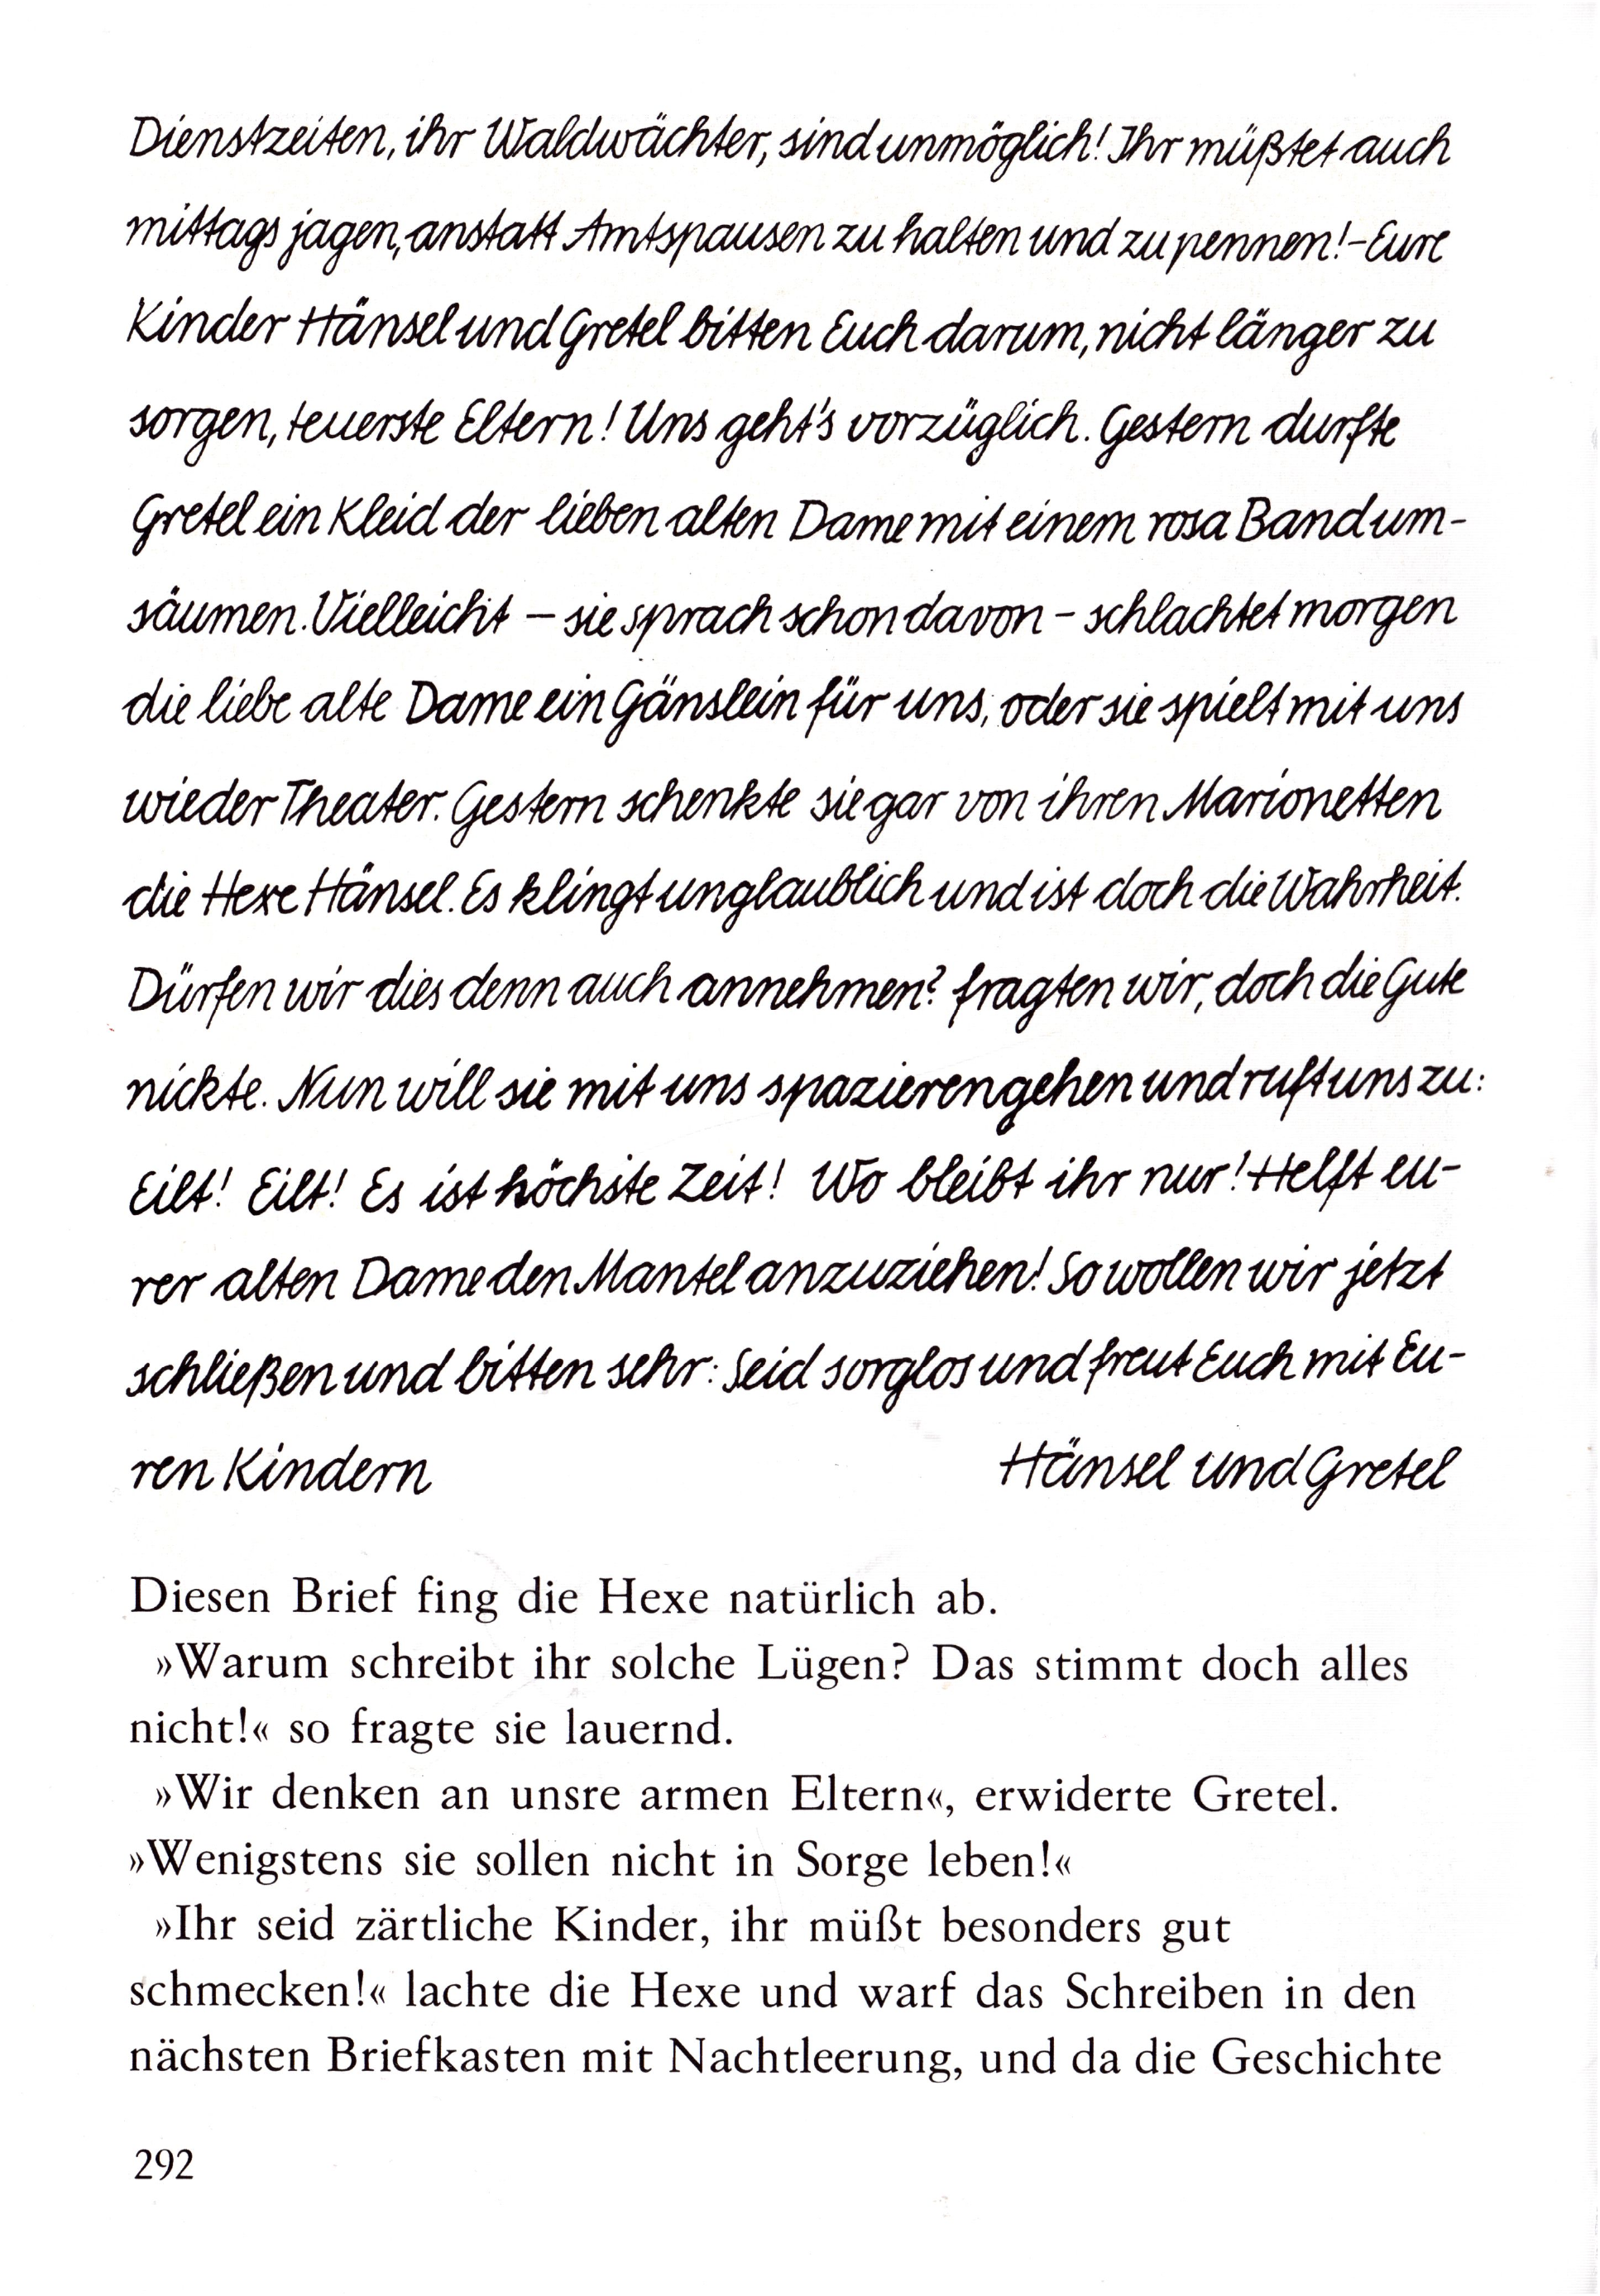 Dienstzeiten, ihr Waldwächter, sind unmöglich! Ihr müßtet auch
mittags jagen, anstatt Amtspausen zu halten und zu pennen! – Eure
Kinder Hänsel und Gretel bitten Euch darum, nicht länger zu
sorgen, teuerste Eltern! Uns geht's vorzüglich. Gestern durfte
Gretel ein Kleid der lieben alten Dame mit einem rosa Band um-
säumen. Vielleicht – sie sprach schon davon – schlachtet morgen
die liebe alte Dame ein Gänslein für uns, oder sie spielt mit uns
wieder Theater. Gestern schenkte sie gar von ihren Marionetten
die Hexe Hänsel. Es klingt unglaublich und ist doch die Wahrheit.
Dürfen wir dies denn auch annehmen? fragten wir, doch die Gute
nickte. Nun will sie mit uns spazierengehen und ruft uns zu:
Eilt! Eilt! Es ist höchste Zeit! Wo bleibt ihr nur! Helft eu-
rer alten Dame den Mantel anzuziehen! So wollen wir jetzt
schließen und bitten sehr: Seid sorglos und freut Euch mit Eu-
ren Kindern Hänsel und Gretel
Diesen Brief fing die Hexe natürlich ab.
»Warum schreibt ihr solche Lügen? Das stimmt doch alles
nicht!« so fragte sie lauernd.
»Wir denken an unsre armen Eltern«, erwiderte Gretel.
»Wenigstens sie sollen nicht in Sorge leben!«
»Ihr seid zärtliche Kinder, ihr müßt besonders gut
schmecken!« lachte die Hexe und warf das Schreiben in den
nächsten Briefkasten mit Nachtleerung, und da die Geschichte
292